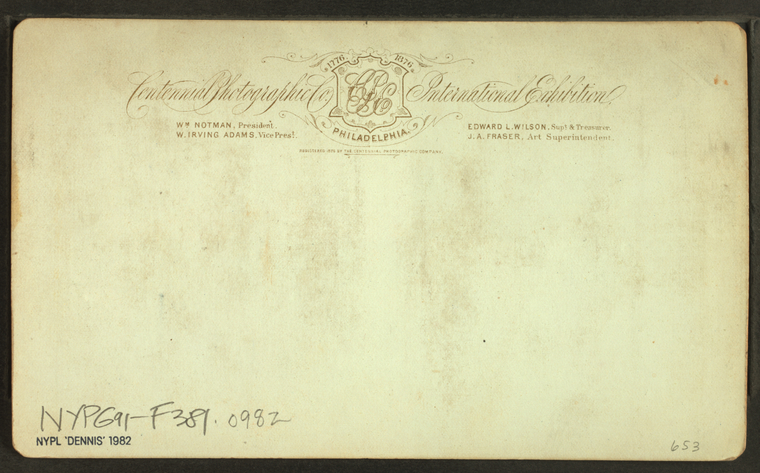 1776 1876
Centennial Photographic Co. International Exhibition.
PHILADELPHIA.
Wm NOTMAN, President.
W. IRVING ADAMS, Vice Prest.
EDWARD L. WILSON, Supt & Treasurer.
J. A. FRASER, Art Superintendent.
REGISTERED 1876 BY THE CENTENNIAL PHOTOGRAPHIC COMPANY.
NYPG91-F389. 0982
NYPL 'DENNIS' 1982
653